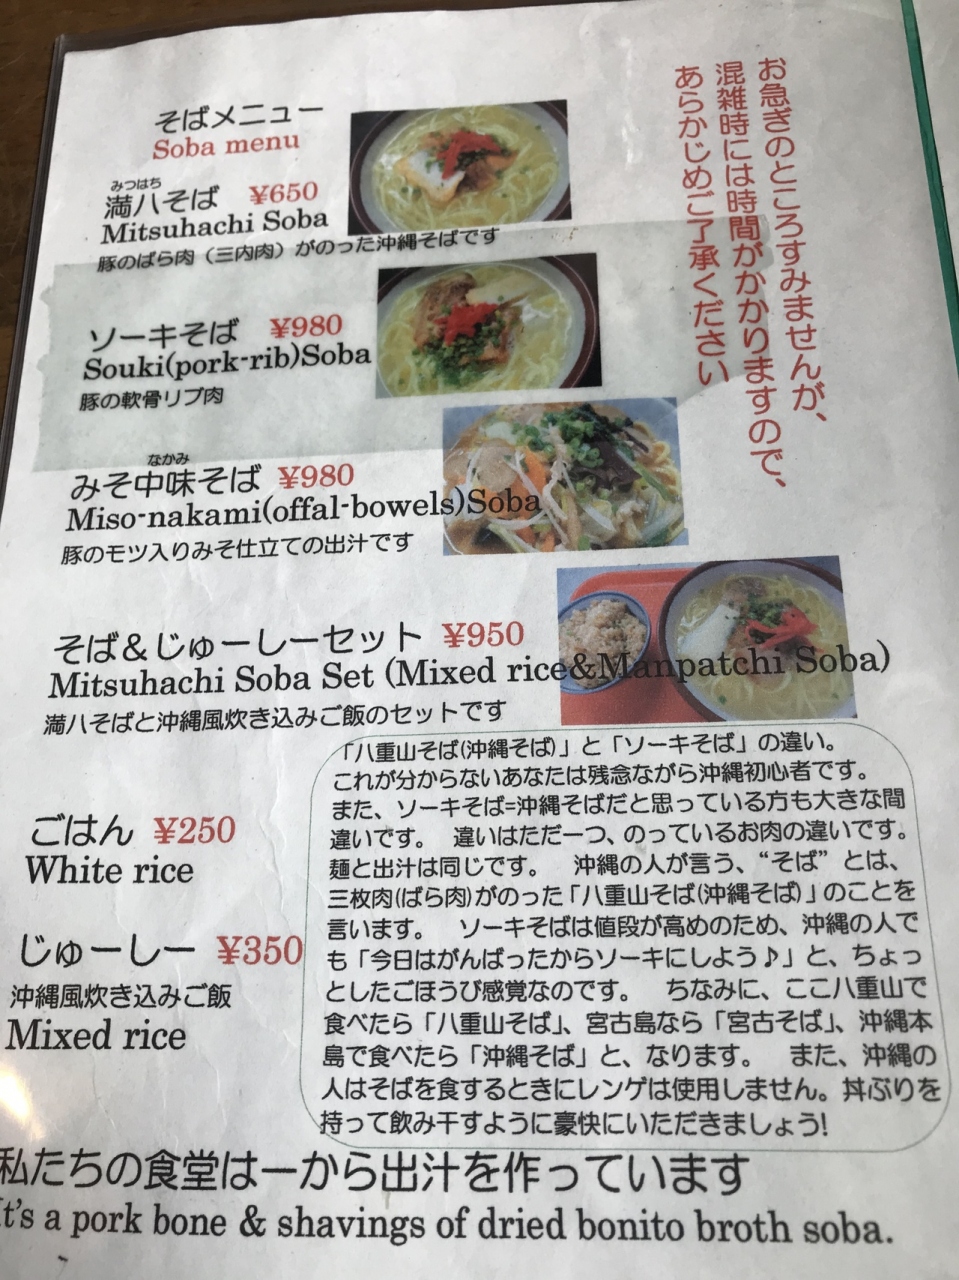 そばメニュー
Soba menu
みつはち
満八そば ¥650
Mitsuhachi Soba
豚のばら肉（三内肉）がのった沖縄そばです
ソーキそば ¥980
Souki(pork-rib)Soba
豚の軟骨リブ肉
なかみ
みそ中味そば ¥980
Miso-nakami(offal-bowels)Soba
豚のモツ入りみそ仕立ての出汁です
そば＆じゅーしーセット ¥950
Mitsuhachi Soba Set (Mixed rice&Manpatchi Soba)
満八そばと沖縄風炊き込みご飯のセットです
ごはん ¥250
White rice
じゅーしー ¥350
沖縄風炊き込みご飯
Mixed rice
お急ぎのところすみませんが、
混雑時には時間がかかりますので、
あらかじめご了承ください
「八重山そば(沖縄そば)」と「ソーキそば」の違い。
これが分からないあなたは残念ながら沖縄初心者です。
また、ソーキそば=沖縄そばだと思っている方も大きな間
違いです。 違いはただ一つ、のっているお肉の違いです。
麺と出汁は同じです。 沖縄の人が言う、“そば” とは、
三枚肉(ばら肉)がのった「八重山そば(沖縄そば)」のことを
言います。 ソーキそばは値段が高めのため、沖縄の人で
も「今日はがんばったからソーキにしよう♪」と、ちょっ
としたごほうび感覚なのです。 ちなみに、ここ八重山で
食べたら「八重山そば」、宮古島なら「宮古そば」、沖縄本
島で食べたら「沖縄そば」と、なります。 また、沖縄の
人はそばを食するときにレンゲは使用しません。丼ぶりを
持って飲み干すように豪快にいただきましょう!
私たちの食堂は一から出汁を作っています
It's a pork bone & shavings of dried bonito broth soba.